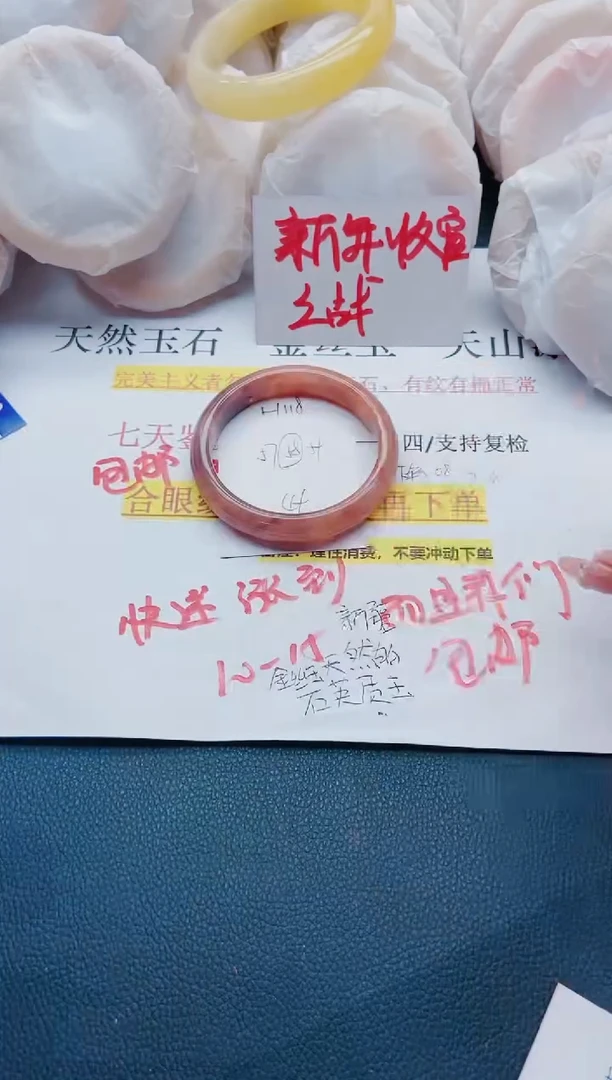 新年收官
之战
天然玉石 金丝玉 天山
完美主义者 石，有纹有棉正常
七天鉴 四/支持复检
包邮
合眼缘 再下单
理性消费，不要冲动下单
快递涨到
新疆
而且我们
10-15
金丝玉天然的
包邮
石英质玉